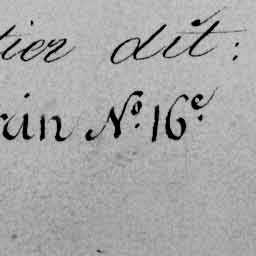 tier dit:
rin N.º 16.e